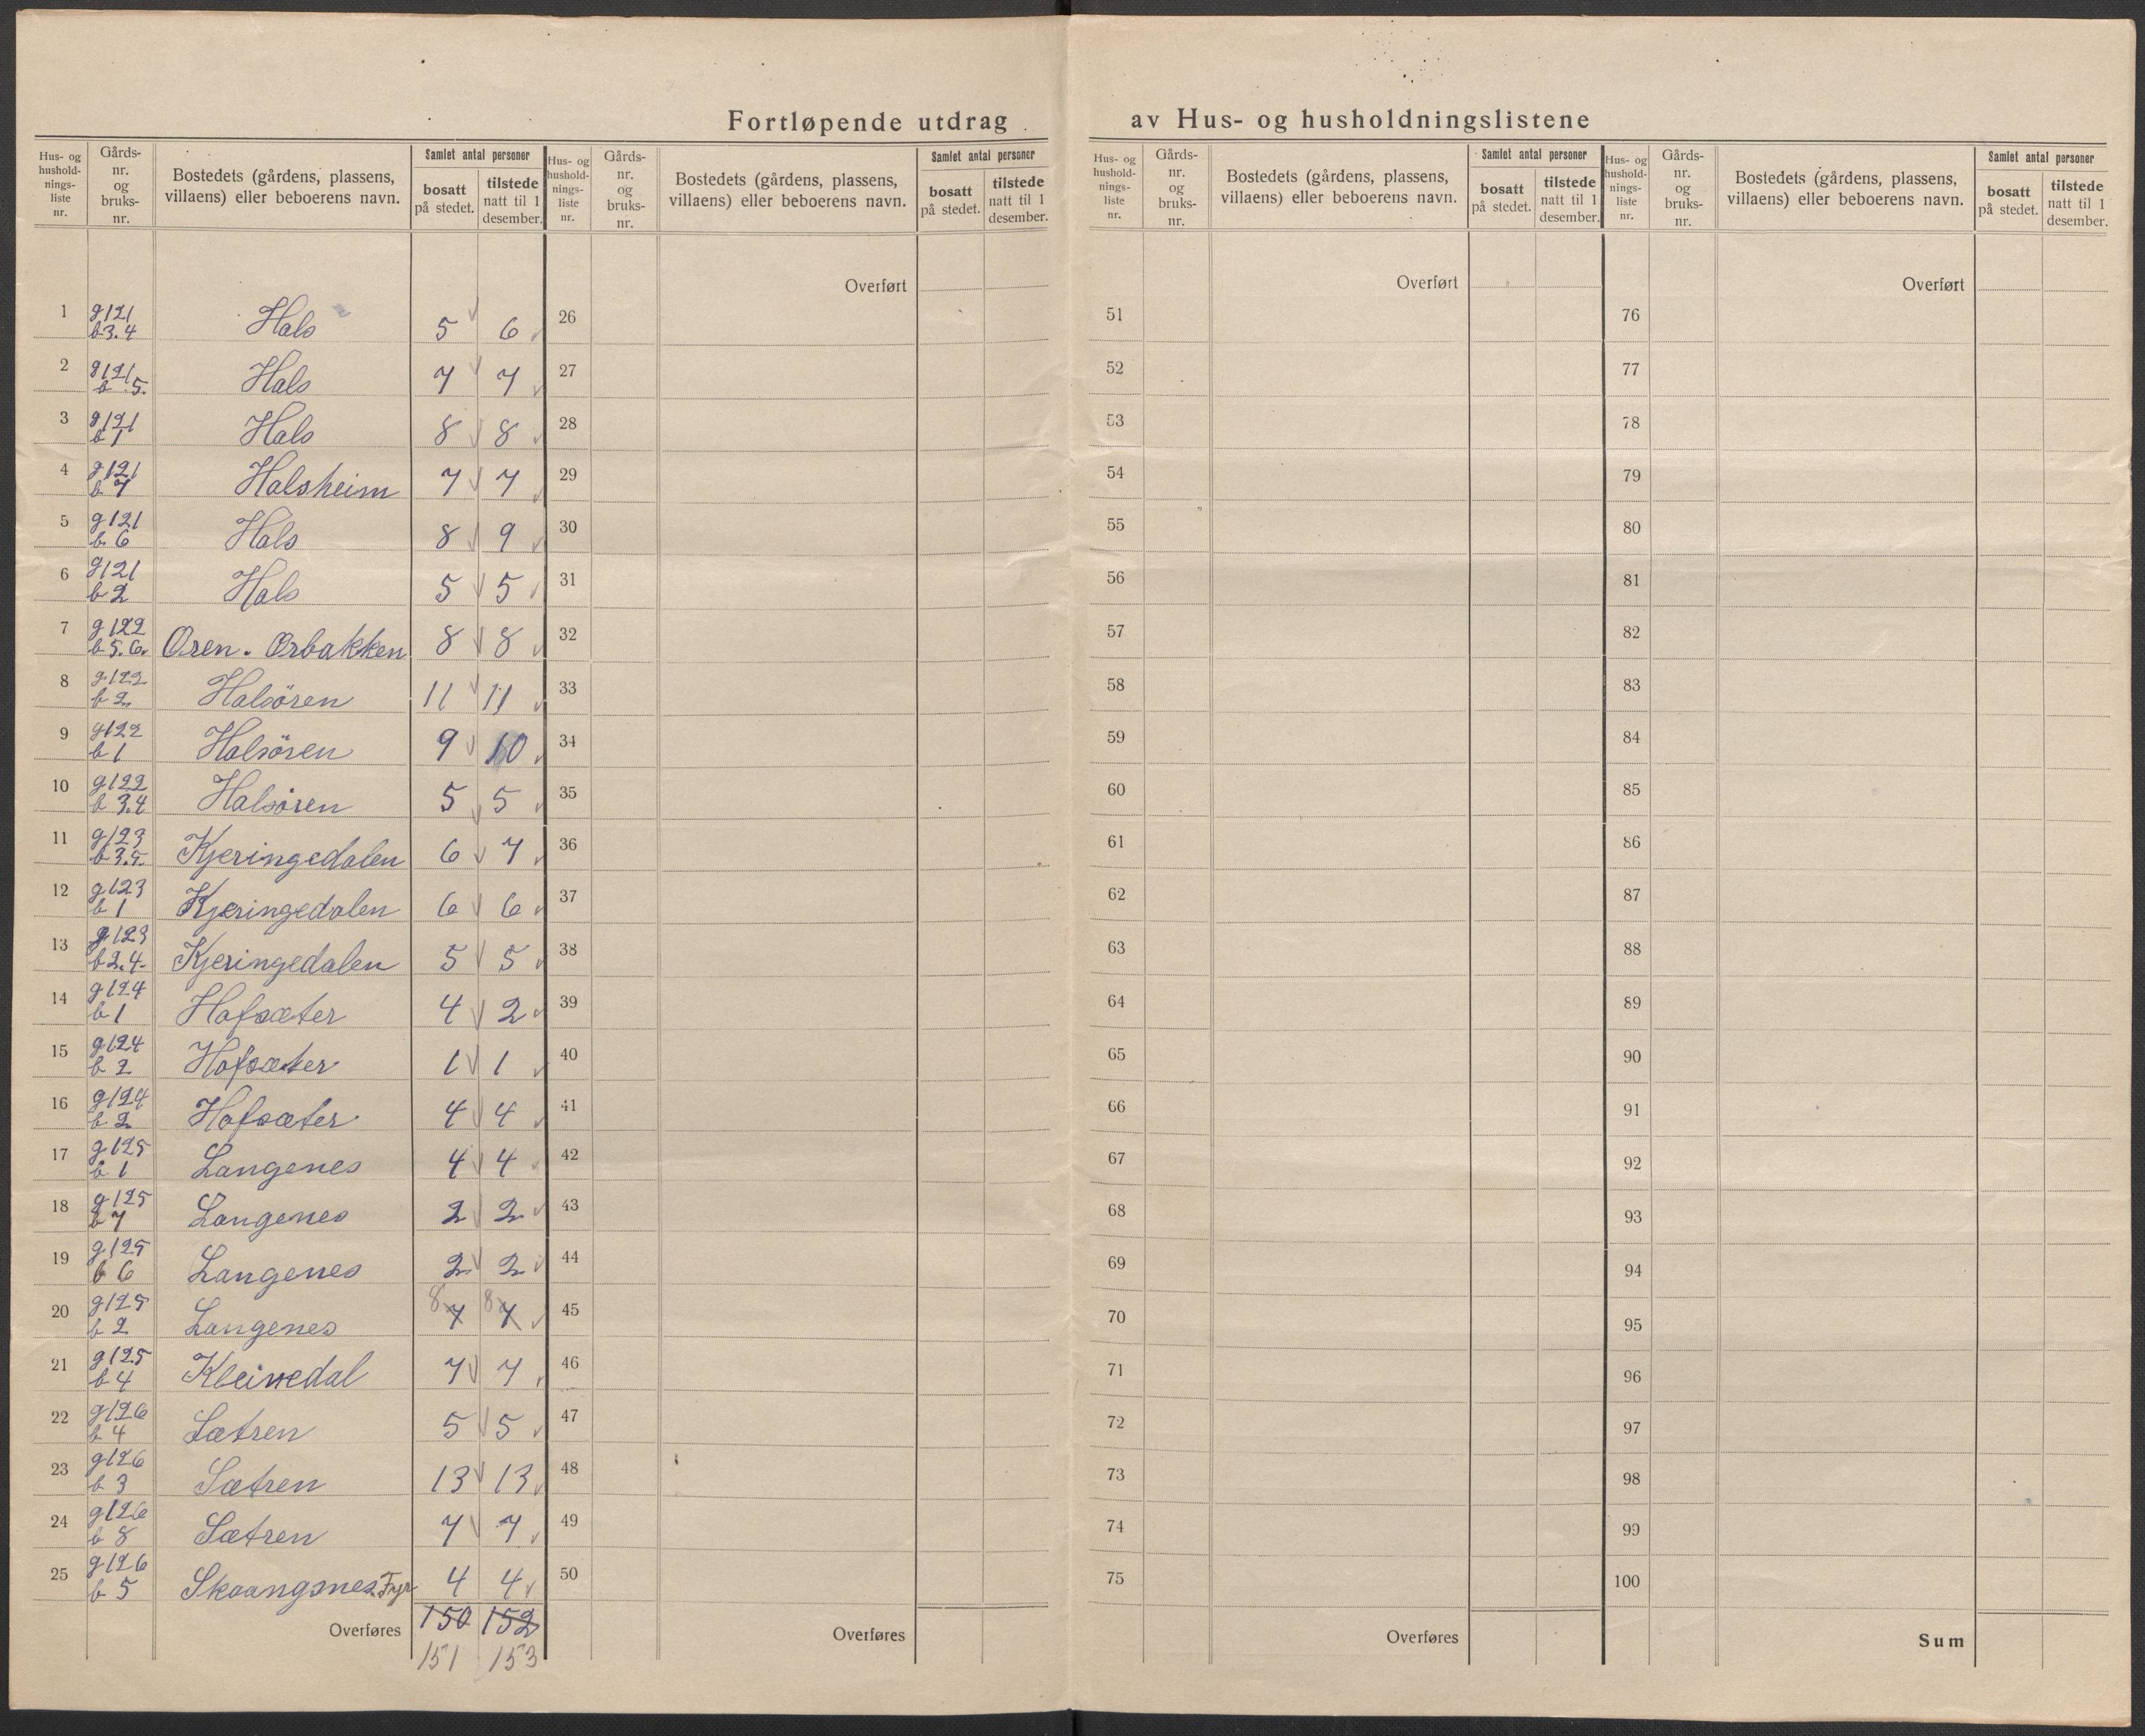 Fortløpende utdrag av Hus- og husholdningslistene
Hus- og husholdnings-liste nr. Gårds-nr. og bruks-nr. Bostedets (gårdens, plassens, villaens) eller beboerens navn. Samlet antal personer bosatt på stedet. tilstede natt til 1 desember.
Hus- og husholdnings-liste nr. Gårds-nr. og bruks-nr. Bostedets (gårdens, plassens, villaens) eller beboerens navn. Samlet antal personer bosatt på stedet. tilstede natt til 1 desember.
Hus- og husholdnings-liste nr. Gårds-nr. og bruks-nr. Bostedets (gårdens, plassens, villaens) eller beboerens navn. Samlet antal personer bosatt på stedet. tilstede natt til 1 desember.
Hus- og husholdnings-liste nr. Gårds-nr. og bruks-nr. Bostedets (gårdens, plassens, villaens) eller beboerens navn. Samlet antal personer bosatt på stedet. tilstede natt til 1 desember.
Overført Overført Overført
1 g121 b3.4 Hals 5 6 26 51 76
2 g121 b 5. Hals 7 7 27 52 77
3 g121 b1 Hals 8 8 28 53 78
4 g121 b7 Halsheim 7 7 29 54 79
5 g121 b.6 Hals 8 9 30 55 80
6 g121 b2 Hals 5 5 31 56 81
7 g122 b5.6. Øren. Ørbakken 8 8 32 57 82
8 g.122 b2 Halsören 11 11 33 58 83
9 g122 b1 Halsören 9 10 34 59 84
10 g122 b 3.4 Halsören 5 5 35 60 85
11 g123 b3.5. Kjeringedalen 6 7 36 61 86
12 g123 b1 Kjeringedalen 6 6 37 62 87
13 g123 b2.4. Kjeringedalen 5 5 38 63 88
14 g124 b1 Hofsæter 4 2 39 64 89
15 g124 b2 Hofsæter 1 1 40 65 90
16 g124 b2 Hofsæter 4 4 41 66 91
17 g125 b1 Langenes 4 4 42 67 92
18 g125 b7 Langenes 2 2 43 68 93
19 g.125 b6 Langenes 2 2 44 69 94
20 g125 b2 Langenes 8 7 8 7 45 70 95
21 g125 b4 Kleivedal 7 7 46 71 96
22 g126 b4 Sætren 5 5 47 72 97
23 g126 b3 Sætren 13 13 48 73 98
24 g126 b8 Sætren 7 7 49 74 99
25 g126 b5 Skaangsnes Fyr 4 4 50 75 100
Overføres 150 152 Overføres Overføres Sum
151 153